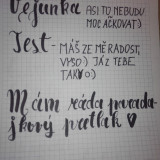 Vejunka ASI TO NEBUDU
MOC AČKOVAT:)
Test - MÁŠ ZE MĚ RADOST,
VYSO:) JÁ Z TEBE
TAKY:)
Mám ráda
jkový